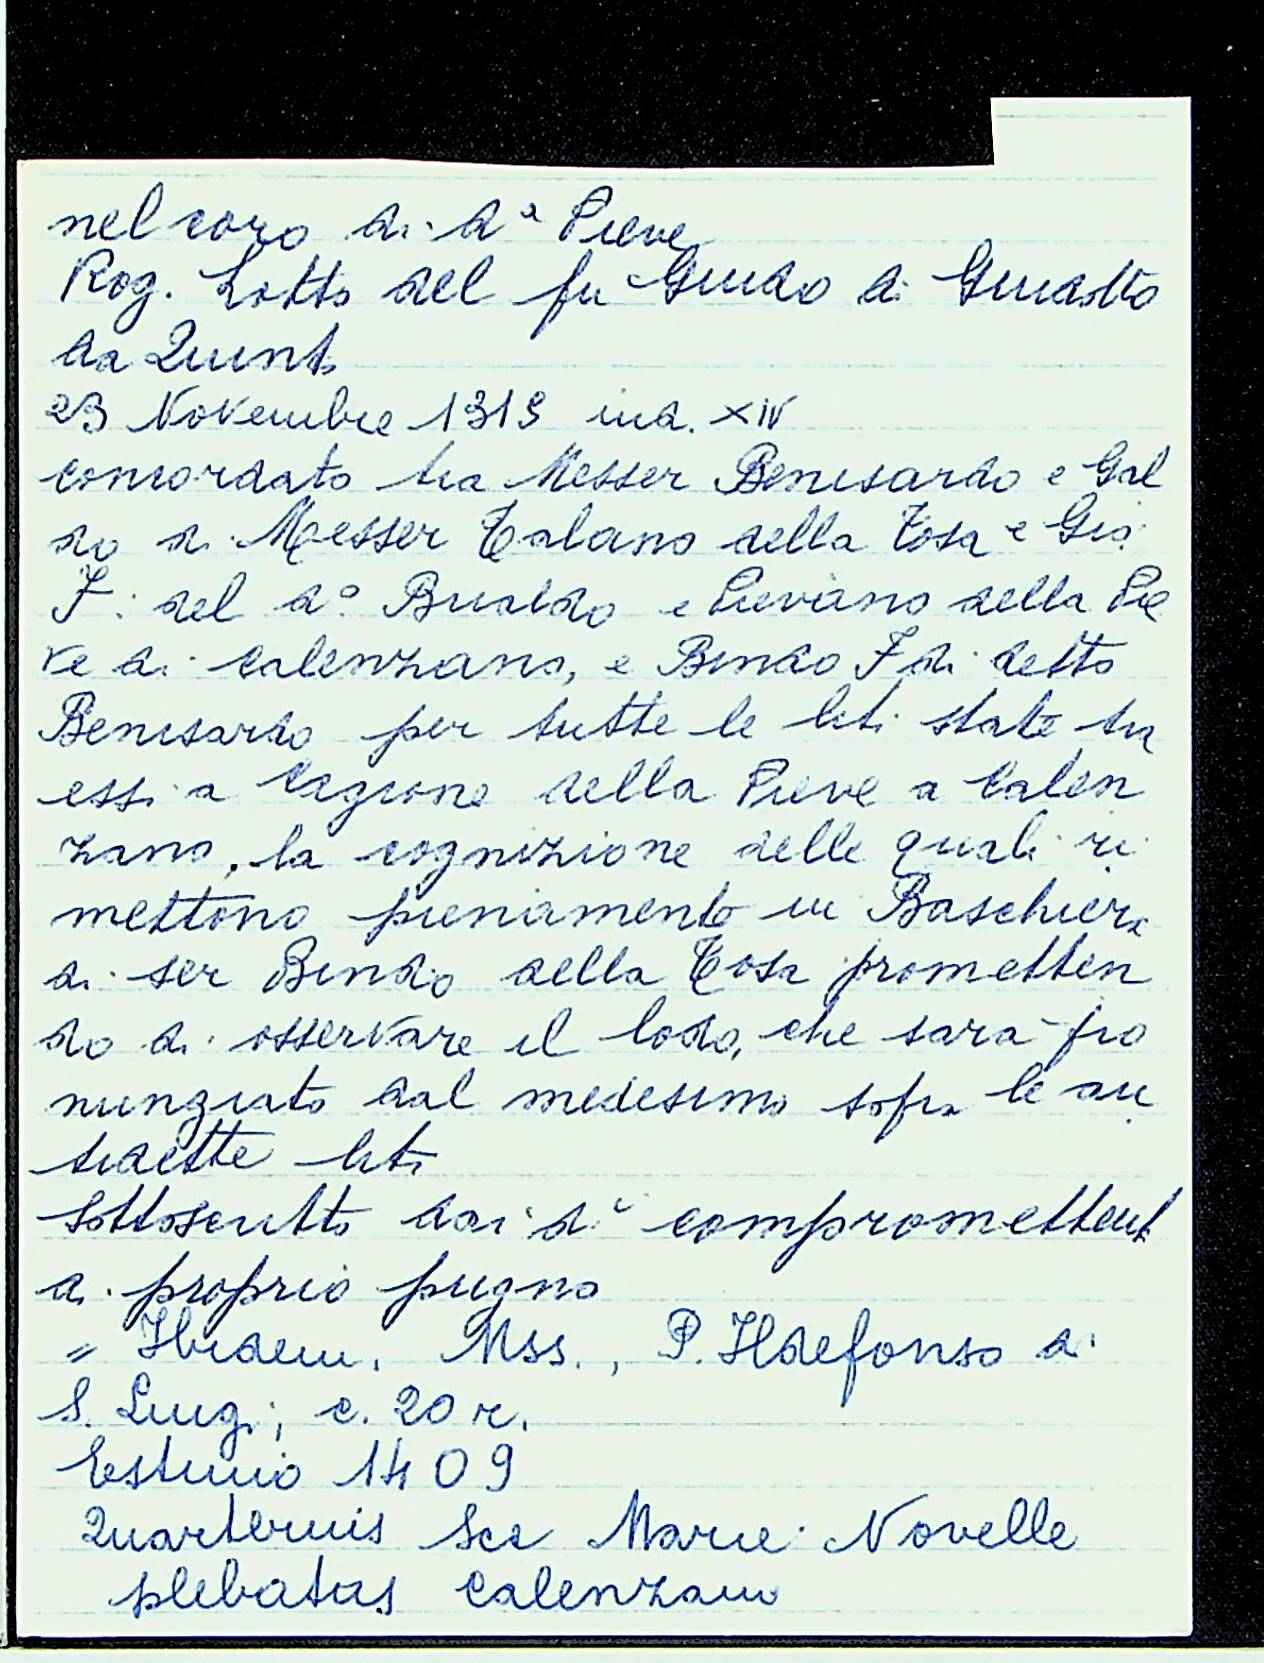 nel coro di dᵃ Pieve
Rog. Lotto del fu Guido di Guidotto
da Quinto
23 Novembre 1315 ind. XIV
concordato tra Messer Benisardo e Gal
do di Messer Talano della Tosa e Gio
F. del dᵒ Brualdo e Pievano della Pie
ve di Calenzano, e Bindo F di detto
Benisardo per tutte le liti state tra
essi a cagione della Pieve a Calen
zano, la cognizione delle quali ri
mettono pienamente in Baschiera
di ser Bindo della Tosa prometten
do di osservare il lodo, che sarà pro
nunziato dal medesimo sopra le an
tidette liti
Sottoscritto dai dⁱ compromettenti
di proprio pugno
= Ibidem, Mss., P. Ildefonso di
S. Luigi, c. 20 r.
Estimo 1409
Quarterius Sce Marie Novelle
plebatus Calenzani